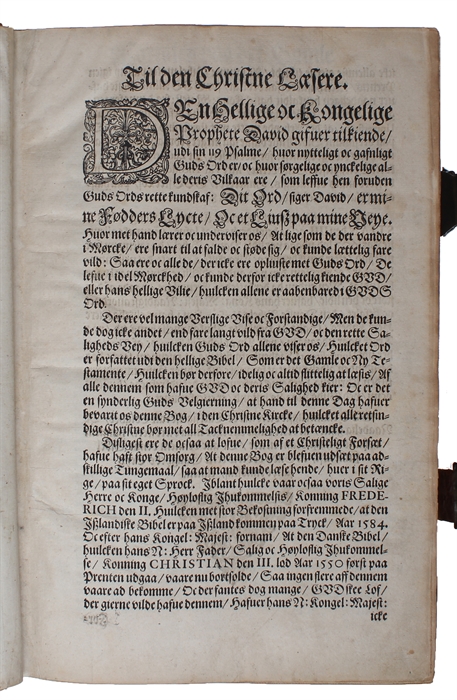 Til den Christne Læsere.
DEn Hellige oc Kongelige
Prophete David gifuer tilkiende/
udi sin 119 Psalme/ huor nytteligt oc gafnligt
Guds Ord er/ oc huor sørgelige oc ynckelige al-
le deris Vilkaar ere/ som leffue hen foruden
Guds Ords rette kundskaf: Dit Ord/ siger David/ er mi-
ne Fødders Lycte/ Oc et Liuß paa mine Veye.
Huor met hand lærer oc underviser os/ At lige som de der vandre
i Mørcke/ ere snart til at falde oc støde sig/ oc kunde lættelig fare
vild: Saa ere oc alle de/ der icke ere opliuste met Guds Ord/ De
lefue i idel Mørckhed/ oc kunde derfor icke rettelig kiende GUD/
eller hans hellige Vilie/ huilcken allene er aabenbared i GUDS
Ord.
Der ere vel mange Verslige Vise oc Forstandige/ Men de kun-
de dog icke andet/ end fare langt vild fra GUD/ oc den rette Sa-
ligheds Vey/ huilcken Guds Ord allene viser os/ Huilcket Ord
er forfattet udi den hellige Bibel/ Som er det Gamle oc Ny Te-
stamente/ Huilcken bør derfore/ idelig oc altid flittelig at læsis/ Af
alle dennem som hafue GUD oc deris Salighed kier: Oc er det
en synderlig Guds Velgierning/ at hand til denne Dag hafuer
bevarit os denne Bog/ i den Christne Kircke/ huilcket alle retsin-
dige Christne bør met all Tacknemmelighed at betæncke.
Disligest ere de ocsaa at lofue/ som af et Christeligt Forsæt/
hafue hafft stor Omsorg/ At denne Bog er blefuen udsæt paa ad-
skillige Tungemaal/ saa at mand kunde læse hende/ huer i sit Ri-
ge/ paa sit eget Sprock. Iblant huilcke vaar ocsaa voris Salige
Herre oc Konge/ Høyloflig Ihukommelsis/ Konning FREDE-
RICH den II. Huilcken met stor Bekostning forfremmede/ at den
Ißlandiske Bibel er paa Ißland kommen paa Tryck/ Aar 1584.
Oc efter hans Kongel: Majest: fornam/ At den Danske Bibel/
huilcken hans N: Herr Fader/ Salig oc Høyloflig Ihukommel-
se/ Konning CHRISTIAN den III. lod Aar 1550 først paa
Prenten udgaa/ vaare nu bortsolde/ Saa ingen flere aff dennem
vaare ad bekomme/ Oc der fantes dog mange/ GUD skee Lof/
der gierne vilde hafue dennem/ Hafuer hans N: Kongel: Majest:
icke